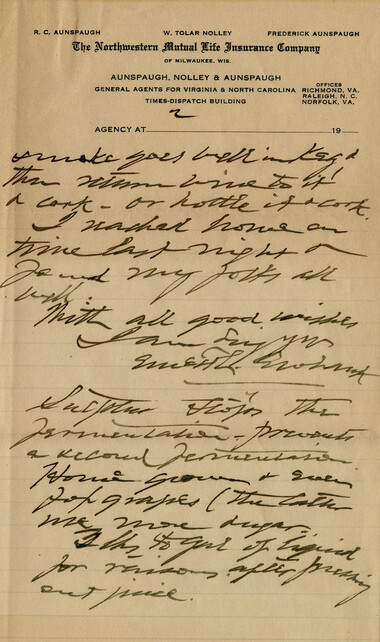 R. C. AUNSPAUGH W. TOLAR NOLLEY FREDERICK AUNSPAUGH
The Northwestern Mutual Life Insurance Company
OF MILWAUKEE, WIS.
AUNSPAUGH, NOLLEY & AUNSPAUGH
GENERAL AGENTS FOR VIRGINIA & NORTH CAROLINA
TIMES-DISPATCH BUILDING
OFFICES
RICHMOND, VA.
RALEIGH, N. C.
NORFOLK, VA.
2
AGENCY AT 19
smoke goes well in Keg &
then return wine to it
& cork - or bottle it & cork.
I reached home on
time last night &
found my folks all
well.
With all good wishes
I am
Sulphur stops the
fermentation - prevents
a second fermentation.
Home grown & even
fox grapes (the latter
use more sugar.
to gal. of liquid
for after pressing
out juice.